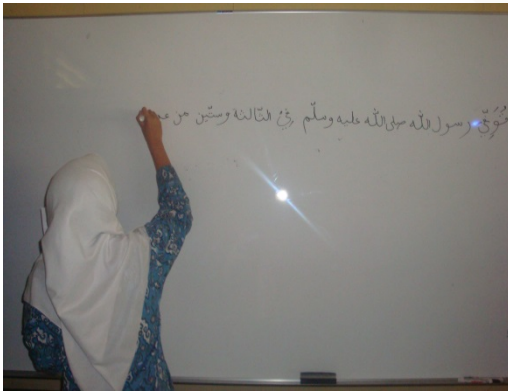 تُوُفِّيَ رسول الله صلى الله عليه وسلّم فِيْ الثّالثة وستّين من